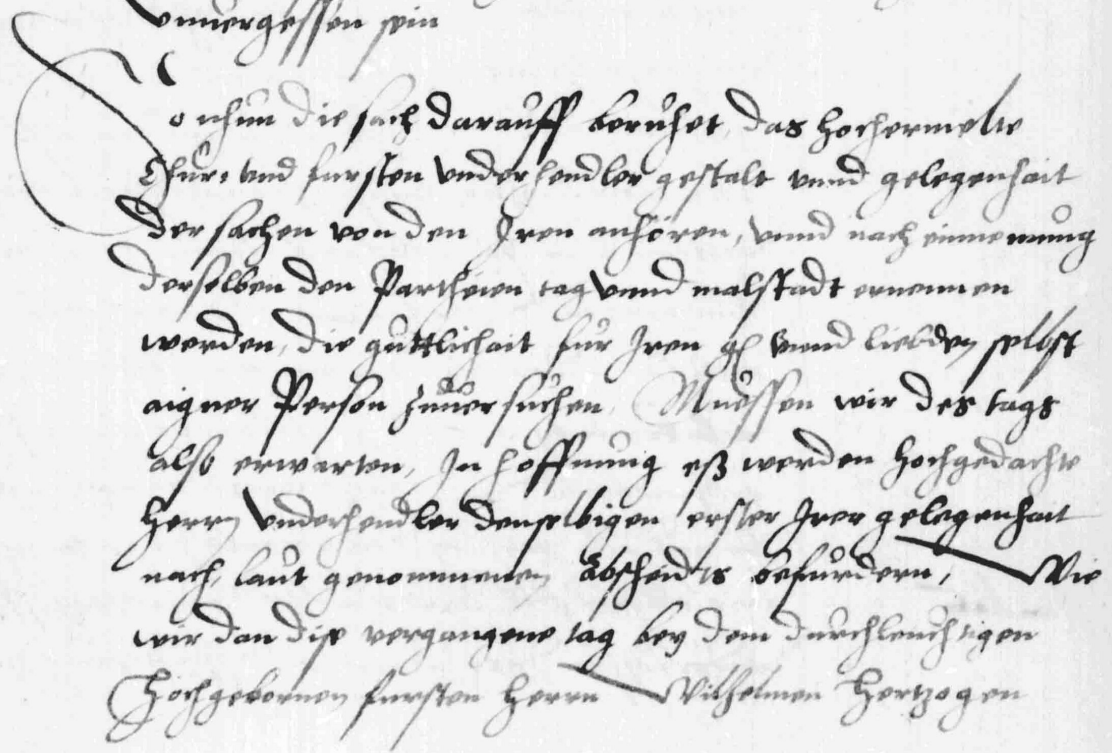 vnuergessen sein
So nhun die sach darauff beruhet, das hochermelte
Chur: vnd fursten vnderhendler gestalt vnnd gelegenhait
der sachen von den Iren anhören, vnnd nach einnemung
derselben den Partheien tag vnnd malstadt ernennen
werden, die guttlichait fur Iren gl vnnd liebden selbst
aigner Person zuuersuchen, Muessen wir des tags
also erwarten, In hoffnung eß werden hochgedachte
herrn vnderhendler denselbigen erster Irer gelegenhait
nach, laut genommenen Abscheidts befurdern, Wie
wir dan diße vergangene tag bey dem durchleuchtigen
hochgebornen fursten herrn Wilhelmen Hertzogen